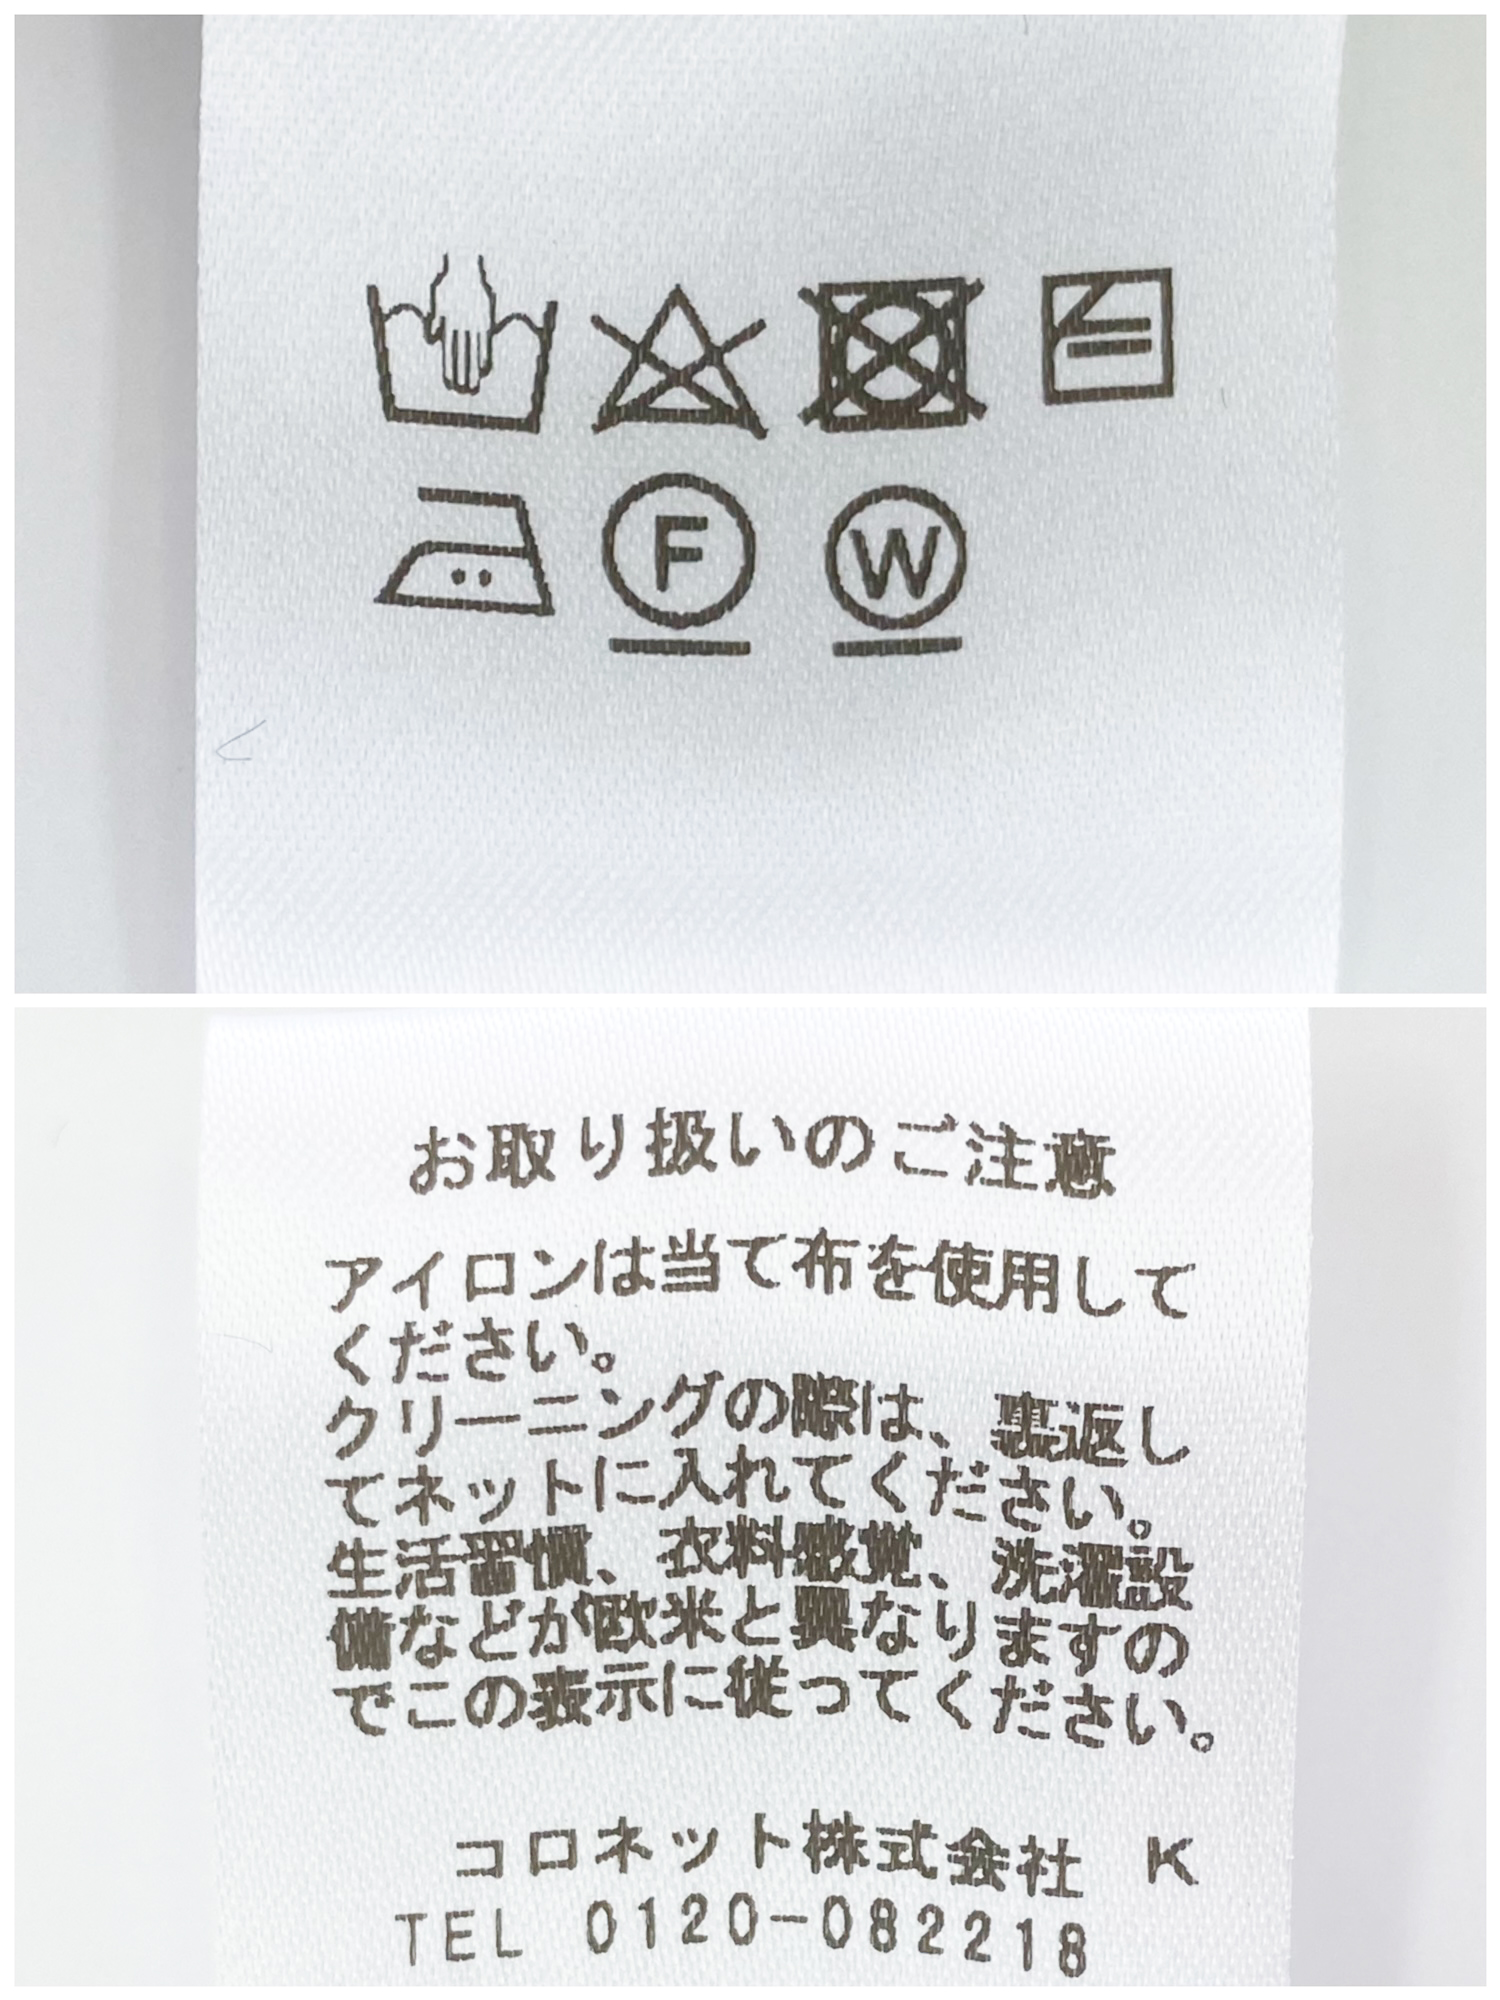 F W
お取り扱いのご注意
アイロンは当て布を使用して
ください。
クリーニングの際は、裏返し
てネットに入れてください。
生活習慣、衣料感覚、洗濯設
備などが欧米と異なりますの
でこの表示に従ってください。
コロネット株式会社 K
TEL 0120-082218